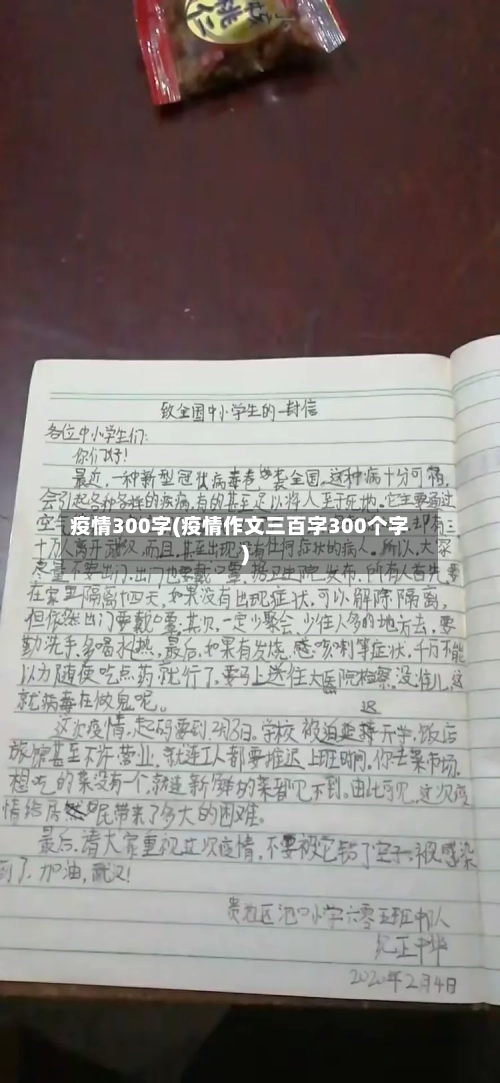 致全国中小学生的一封信
各位中小学生们:
你们好!
最近,一种新型冠状病毒卷袭全国,这种病十分可怕,
会引起各种各样的疾病,有的甚至足以将人至于死地。它主要通过
空气
疫情300字(疫情作文三百字300个字
)
却有三
十万人离开武汉,而且,甚至出现没有任何症状的病人。所以,大家
尽量不要出门,出门也要戴口罩,据卫生院发布,所有人首先,要
在家里隔离十四天,如果没有出现症状,可以解除隔离,
但依然出门要戴口罩,其次,一定少聚会,少往人多的地方去,要
勤洗手,多喝水,最后,如果有发烧、感咳嗽等症状,千万不能
以为随便吃点药就行了,要马上送往大医院检察,没准儿,这
就病毒在做鬼呢。
这次疫情,起码要到2月3日。学校被迫延迟开学,饭店
旅馆甚至不许营业,就连工人都要推迟上班时间,你去菜市场,
想吃的菜没有一个,就连新鲜的菜都见不到。由此可见,这次疫
情给居民带来了多大的困难。
最后,请大家重视这次疫情,不要被它钻了空子,被感染
到了,加油,武汉!
贵池区池口小学六零五班
纪正中华
2020年2月4日